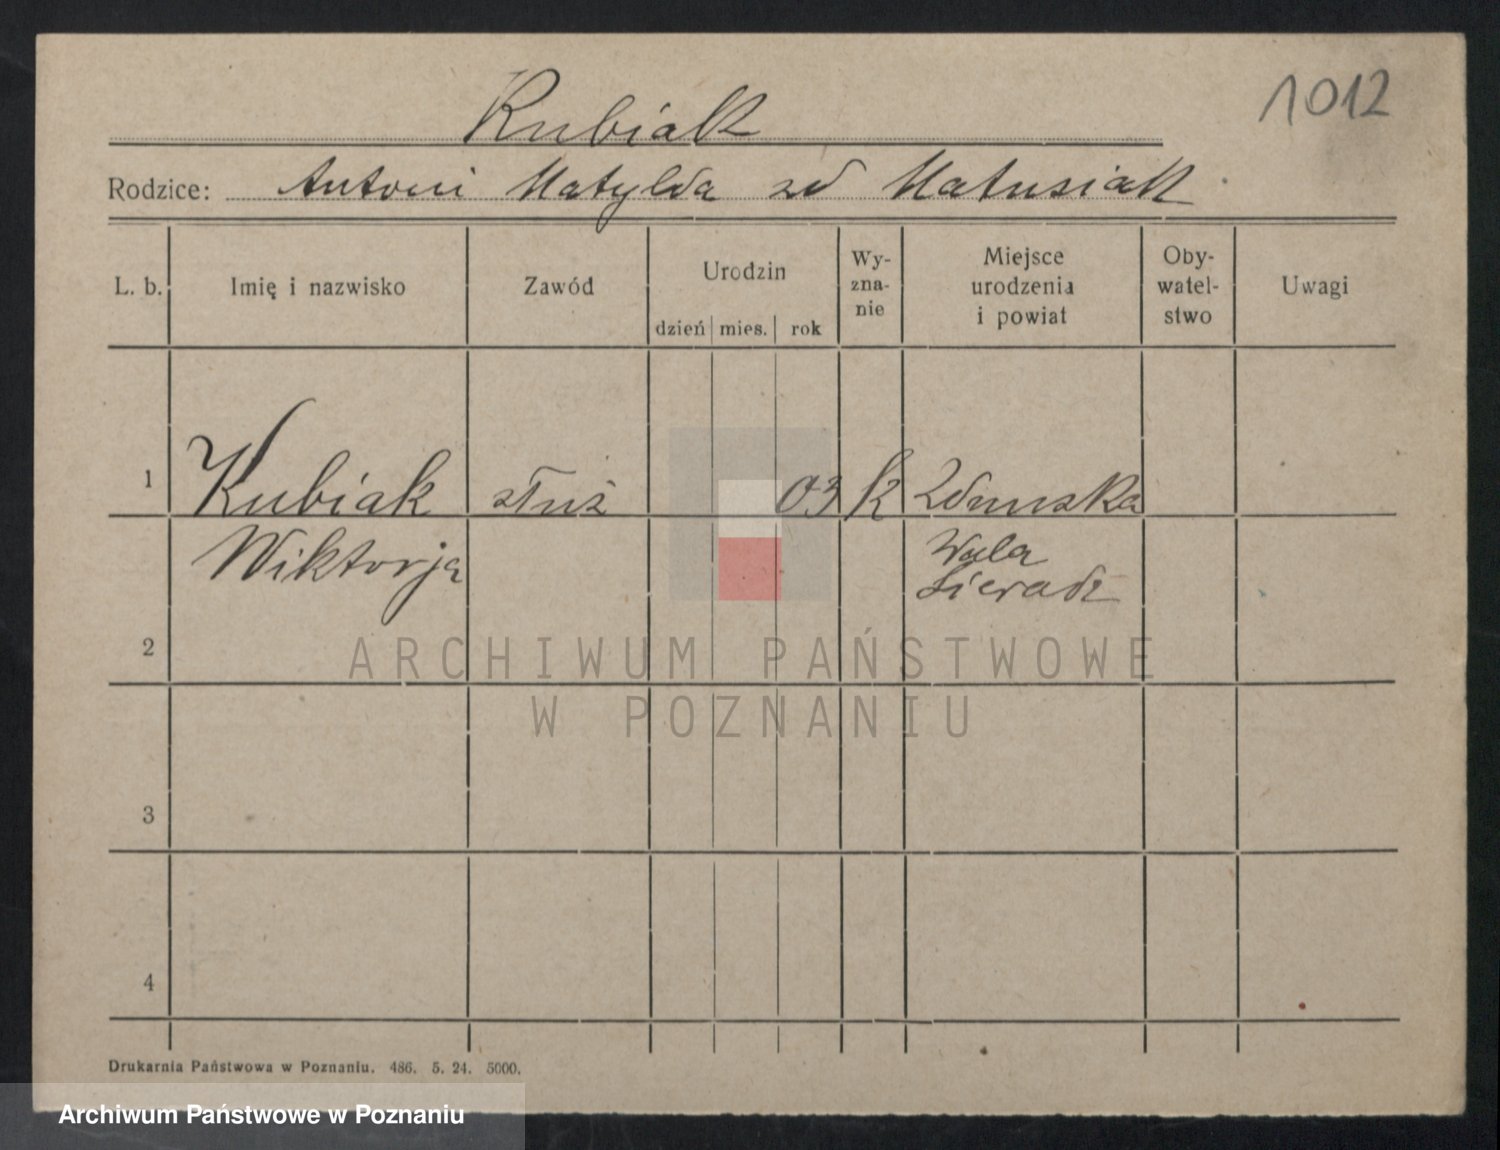 1012
Kubiak
Rodzice: Antoni Matylda zd Matusiak
L. b. Imię i nazwisko Zawód Urodzin dzień mies. rok Wy-zna-nie Miejsce urodzenia i powiat Oby-watel-stwo Uwagi
1 Kubiak służ 03 k Zduńska
Wiktorja Wola
Sieradz
2
ARCHIWUM PAŃSTWOWE
W POZNANIU
3
4
Drukarnia Państwowa w Poznaniu. 486. 5. 24. 5000.
Archiwum Państwowe w Poznaniu